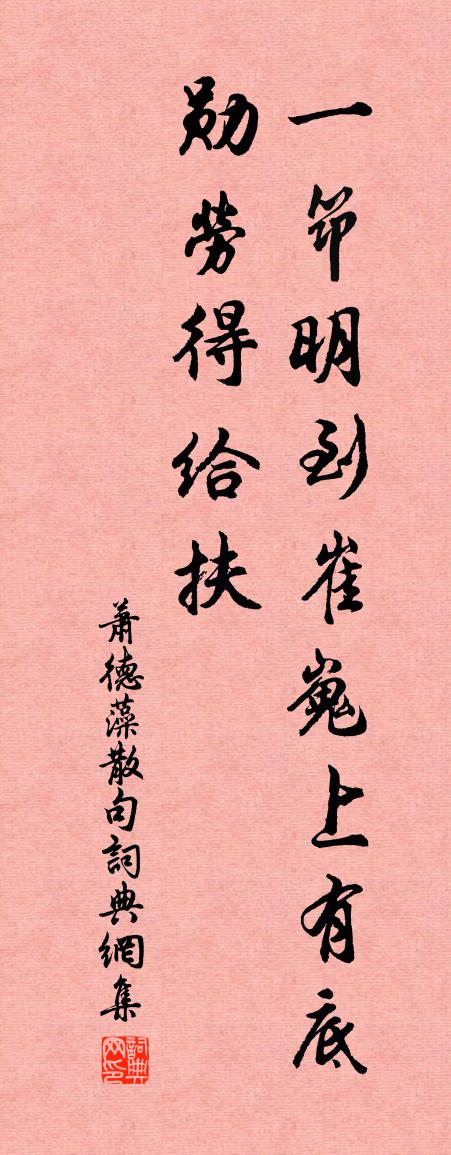 一筇明到崔嵬上有底
勛勞得給扶
蕭德藻散句詞典網集
詞典网印